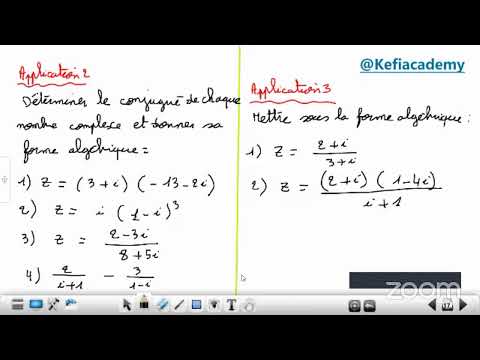 @Kefiacademy
Application 2
Déterminer le conjugué de chaque
nombre complexe et donner sa
forme algébrique :
1) Z = (3+i) (-13-2i)
2) Z = i (1-i)^3
3) Z = \frac{2-3i}{8+5i}
4) \frac{2}{i+1} - \frac{3}{1-i}
Application 3
Mettre sous la forme algébrique :
1) Z = \frac{2+i}{3+i}
2) Z = \frac{(2+i) (1-4i)}{i+1}
zoom